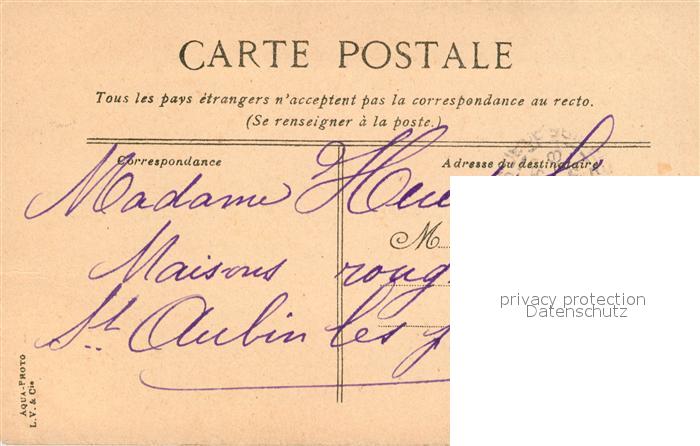 CARTE POSTALE
Tous les pays étrangers n'acceptent pas la correspondance au recto.
(Se renseigner à la poste.)
Correspondance
Adresse du destinataire
Madame
M
Maisons roug
St. Aubin les
privacy protection
Datenschutz
AQUA-PHOTO
L.V. & Cie